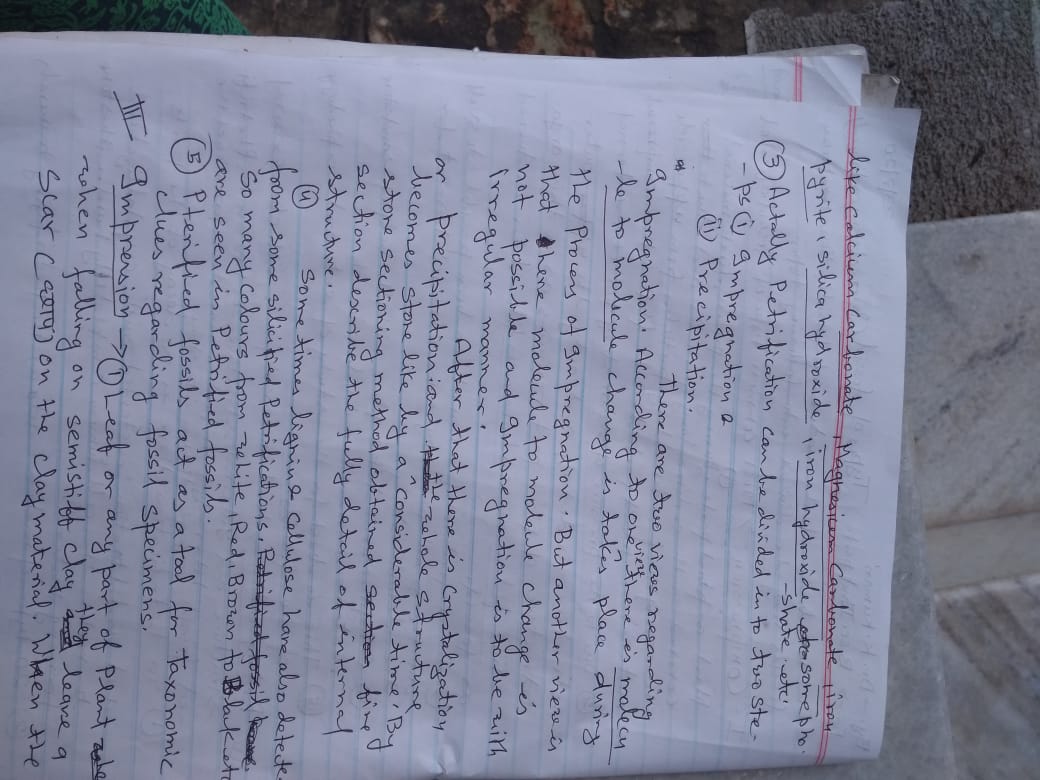 like Calcium carbonate, Magnesium Carbonate, iron
Pyrite, silica hydroxide, iron hydroxide some pho-
shate etc.
(3) Actally Petrification can be divided in to two ste-
-ps (i) Impregnation &
(ii) Precipitation.
There are two views regarding
Impregnation. According to one view there is molecu
-le to molecule change is takes place during
the Process of Impregnation. But another view is
that there molecule to molecule change is
not possible and Impregnation is to be with
irregular manner.
After that there is Crystalization
or precipitation and the whole structure
becomes stone like by a considerable time. By
stone sectioning method obtained fine
section describe the fully detail of internal
structure.
(4) Sometimes lignin & cellulose have also detete-
from some silicified Petrifications.
So many colours from white, Red, Brown to Blak etc
are seen in Petrified fossils.
(5) Pterified fossils act as a tool for taxonomic
clues regarding fossil specimens.
III Impression → (1) Leaf or any part of Plant
when falling on semistiff clay they leave a
Scar ( ) on the clay material. When the